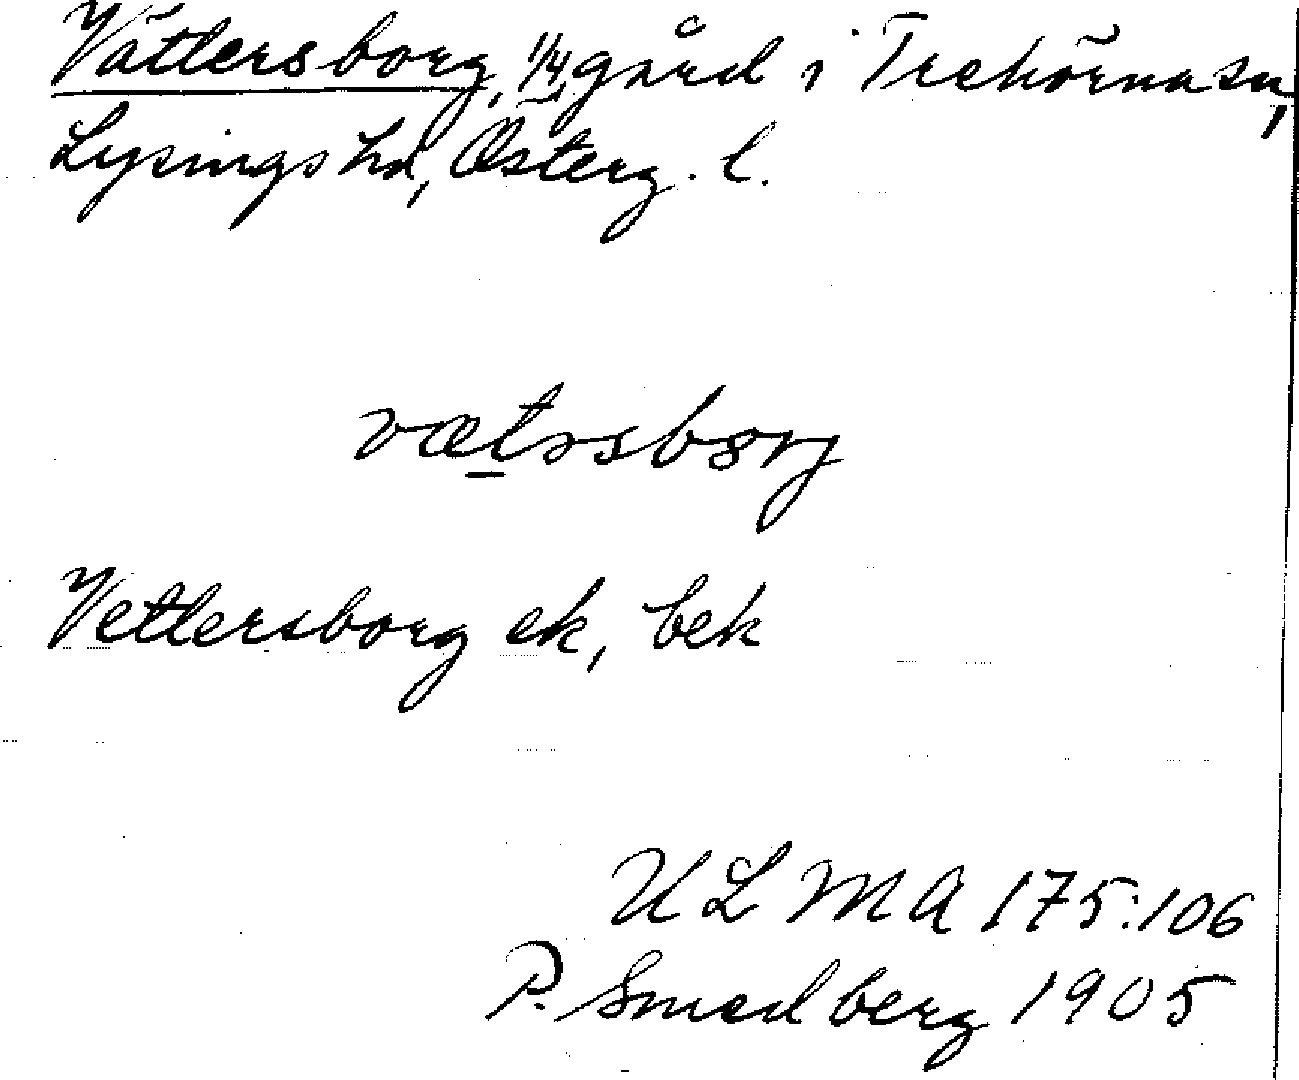 Vättersborg, 1/4 gård i Trehörna sn,
Lysings hd, Österg. l.
vætrsbórj
Vettersborg ek, bek
ULMA 175:106
P. Smedberg 1905